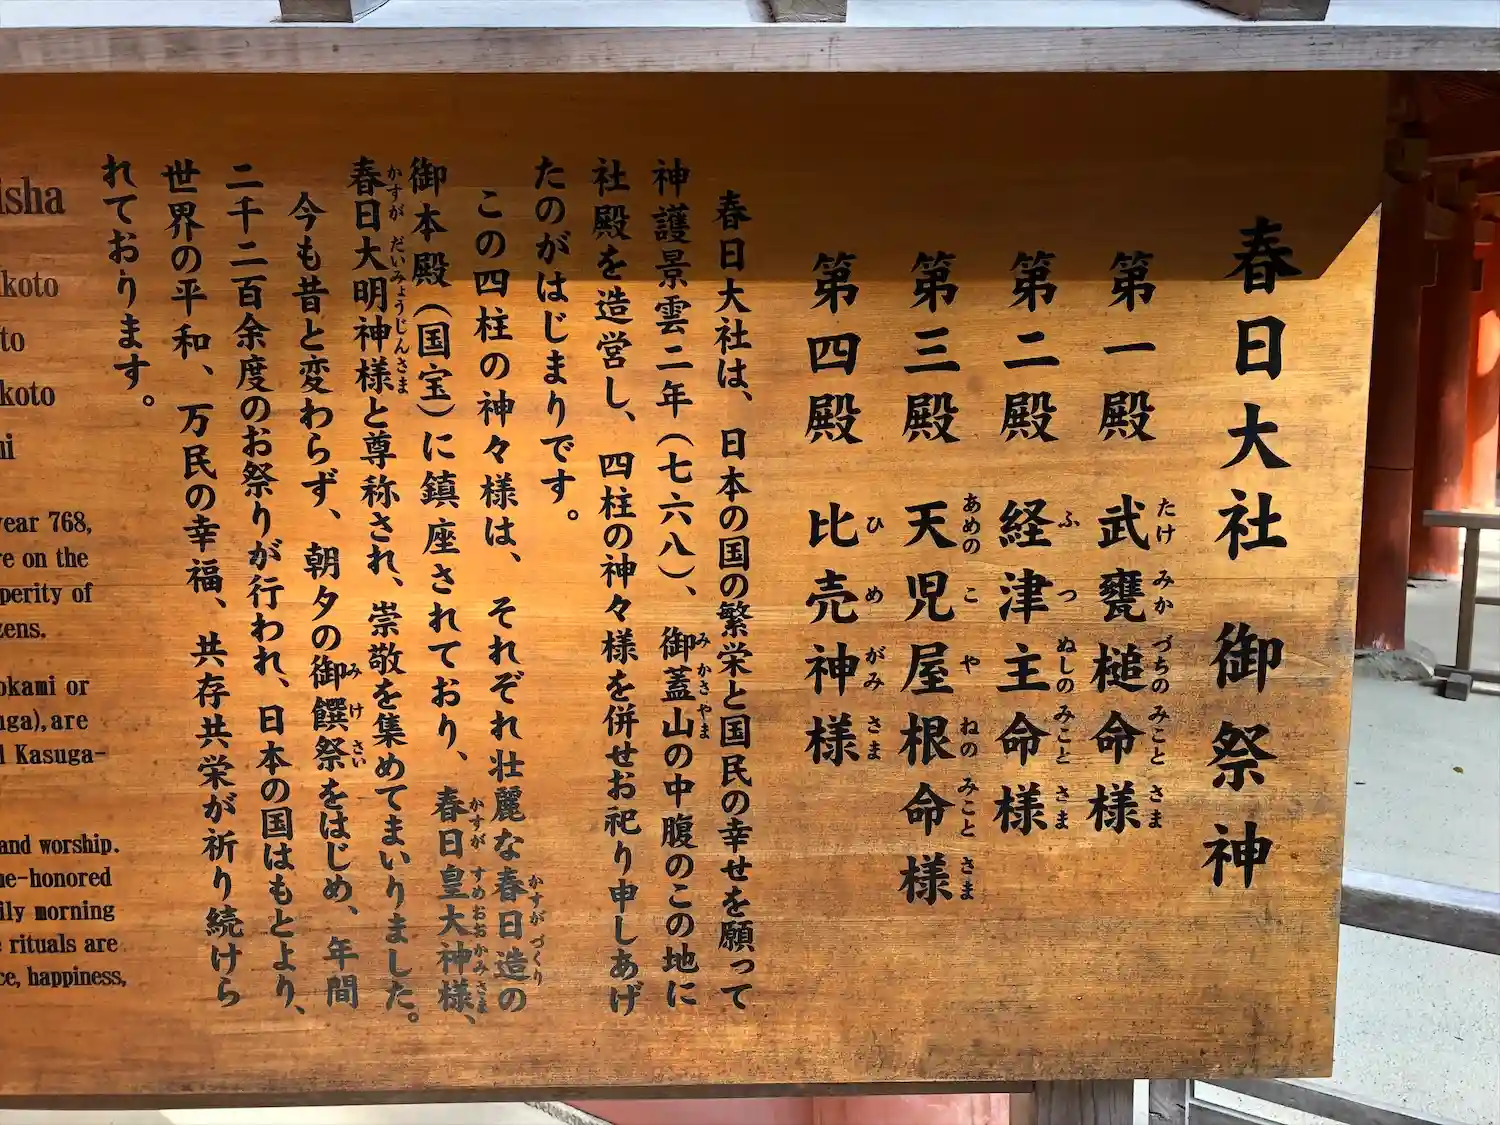 春日大社 御祭神
第一殿 武甕槌命様
たけ みか づちの みこと さま
第二殿 経津主命様
ふ つ ぬしの みこと さま
第三殿 天児屋根命様
あめの こ や ねの みこと さま
第四殿 比売神様
ひ め がみ さま
春日大社は、日本の国の繁栄と国民の幸せを願って
神護景雲二年（七六八）、御蓋山の中腹のこの地に
み かさ やま
社殿を造営し、四柱の神々様を併せお祀り申しあげ
たのがはじまりです。
この四柱の神々様は、それぞれ壮麗な春日造の
かすが づくり
御本殿（国宝）に鎮座されており、春日皇大神様、
かすが すめおおかみさま
春日大明神様と尊称され、崇敬を集めてまいりました。
かすが だいみょうじんさま
今も昔と変わらず、朝夕の御饌祭をはじめ、年間
み け さい
二千二百余度のお祭りが行われ、日本の国はもとより、
世界の平和、万民の幸福、共存共栄が祈り続けら
れております。
isha
koto
to
koto
ni
year 768,
e on the
perity of
zens.
okami or
uga), are
l Kasuga-
and worship.
ne-honored
ily morning
e rituals are
ce, happiness,